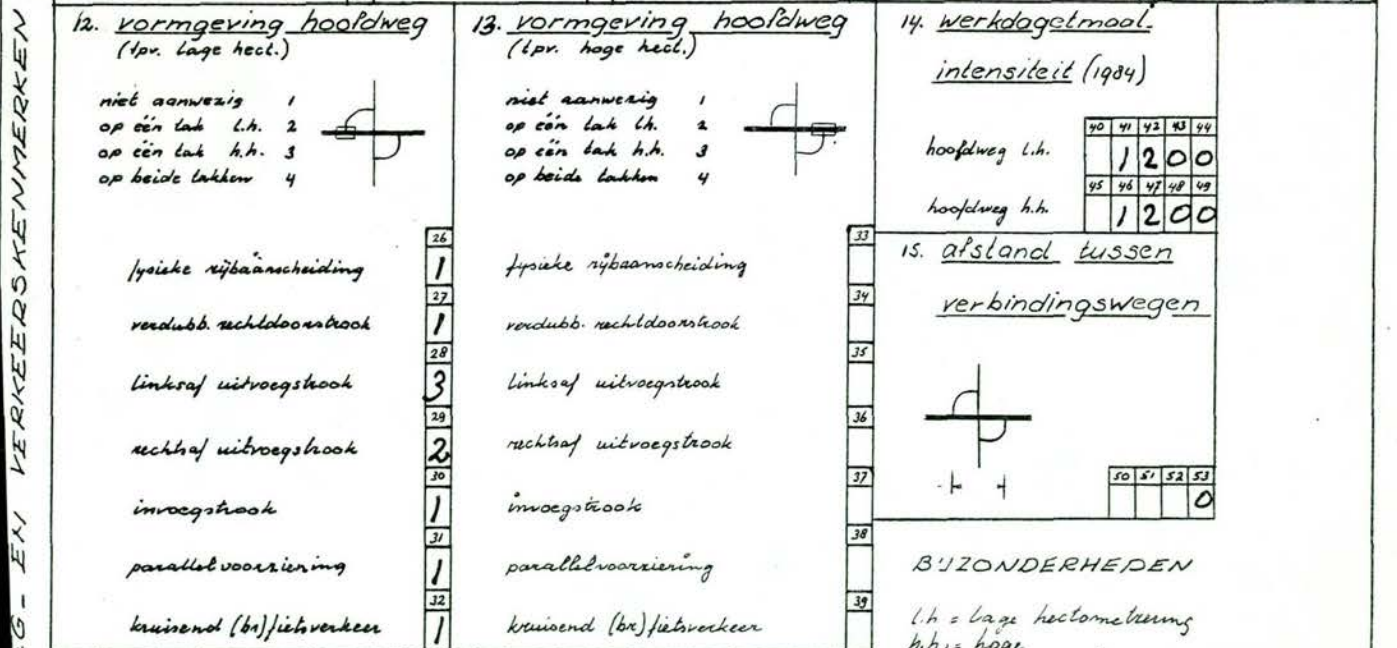 12. vormgeving hoofdweg
(tpv. lage hect.)
niet aanwezig 1
op één tak l.h. 2
op één tak h.h. 3
op beide takken 4
26
fysieke rijbaanscheiding 1
27
verdubb. rechtdoorstrook 1
28
linksaf uitvoegstrook 3
29
rechtsaf uitvoegstrook 2
30
invoegstrook 1
31
parallelvoorziening 1
32
kruisend (br) fietsverkeer 1
13. vormgeving hoofdweg
(tpv. hoge hect.)
niet aanwezig 1
op één tak l.h. 2
op één tak h.h. 3
op beide takken 4
33
fysieke rijbaanscheiding
34
verdubb. rechtdoorstrook
35
linksaf uitvoegstrook
36
rechtsaf uitvoegstrook
37
invoegstrook
38
parallelvoorziening
39
kruisend (br) fietsverkeer
14. werkdagetmaal-
intensiteit (1984)
40 41 42 43 44
hoofdweg l.h. 1 2 0 0
45 46 47 48 49
hoofdweg h.h. 1 2 0 0
15. afstand tussen
verbindingswegen
50 51 52 53
0
BIJZONDERHEDEN
l.h = lage hectometrering
h.h = hoge
G - EN VERKEERSKENMERKEN